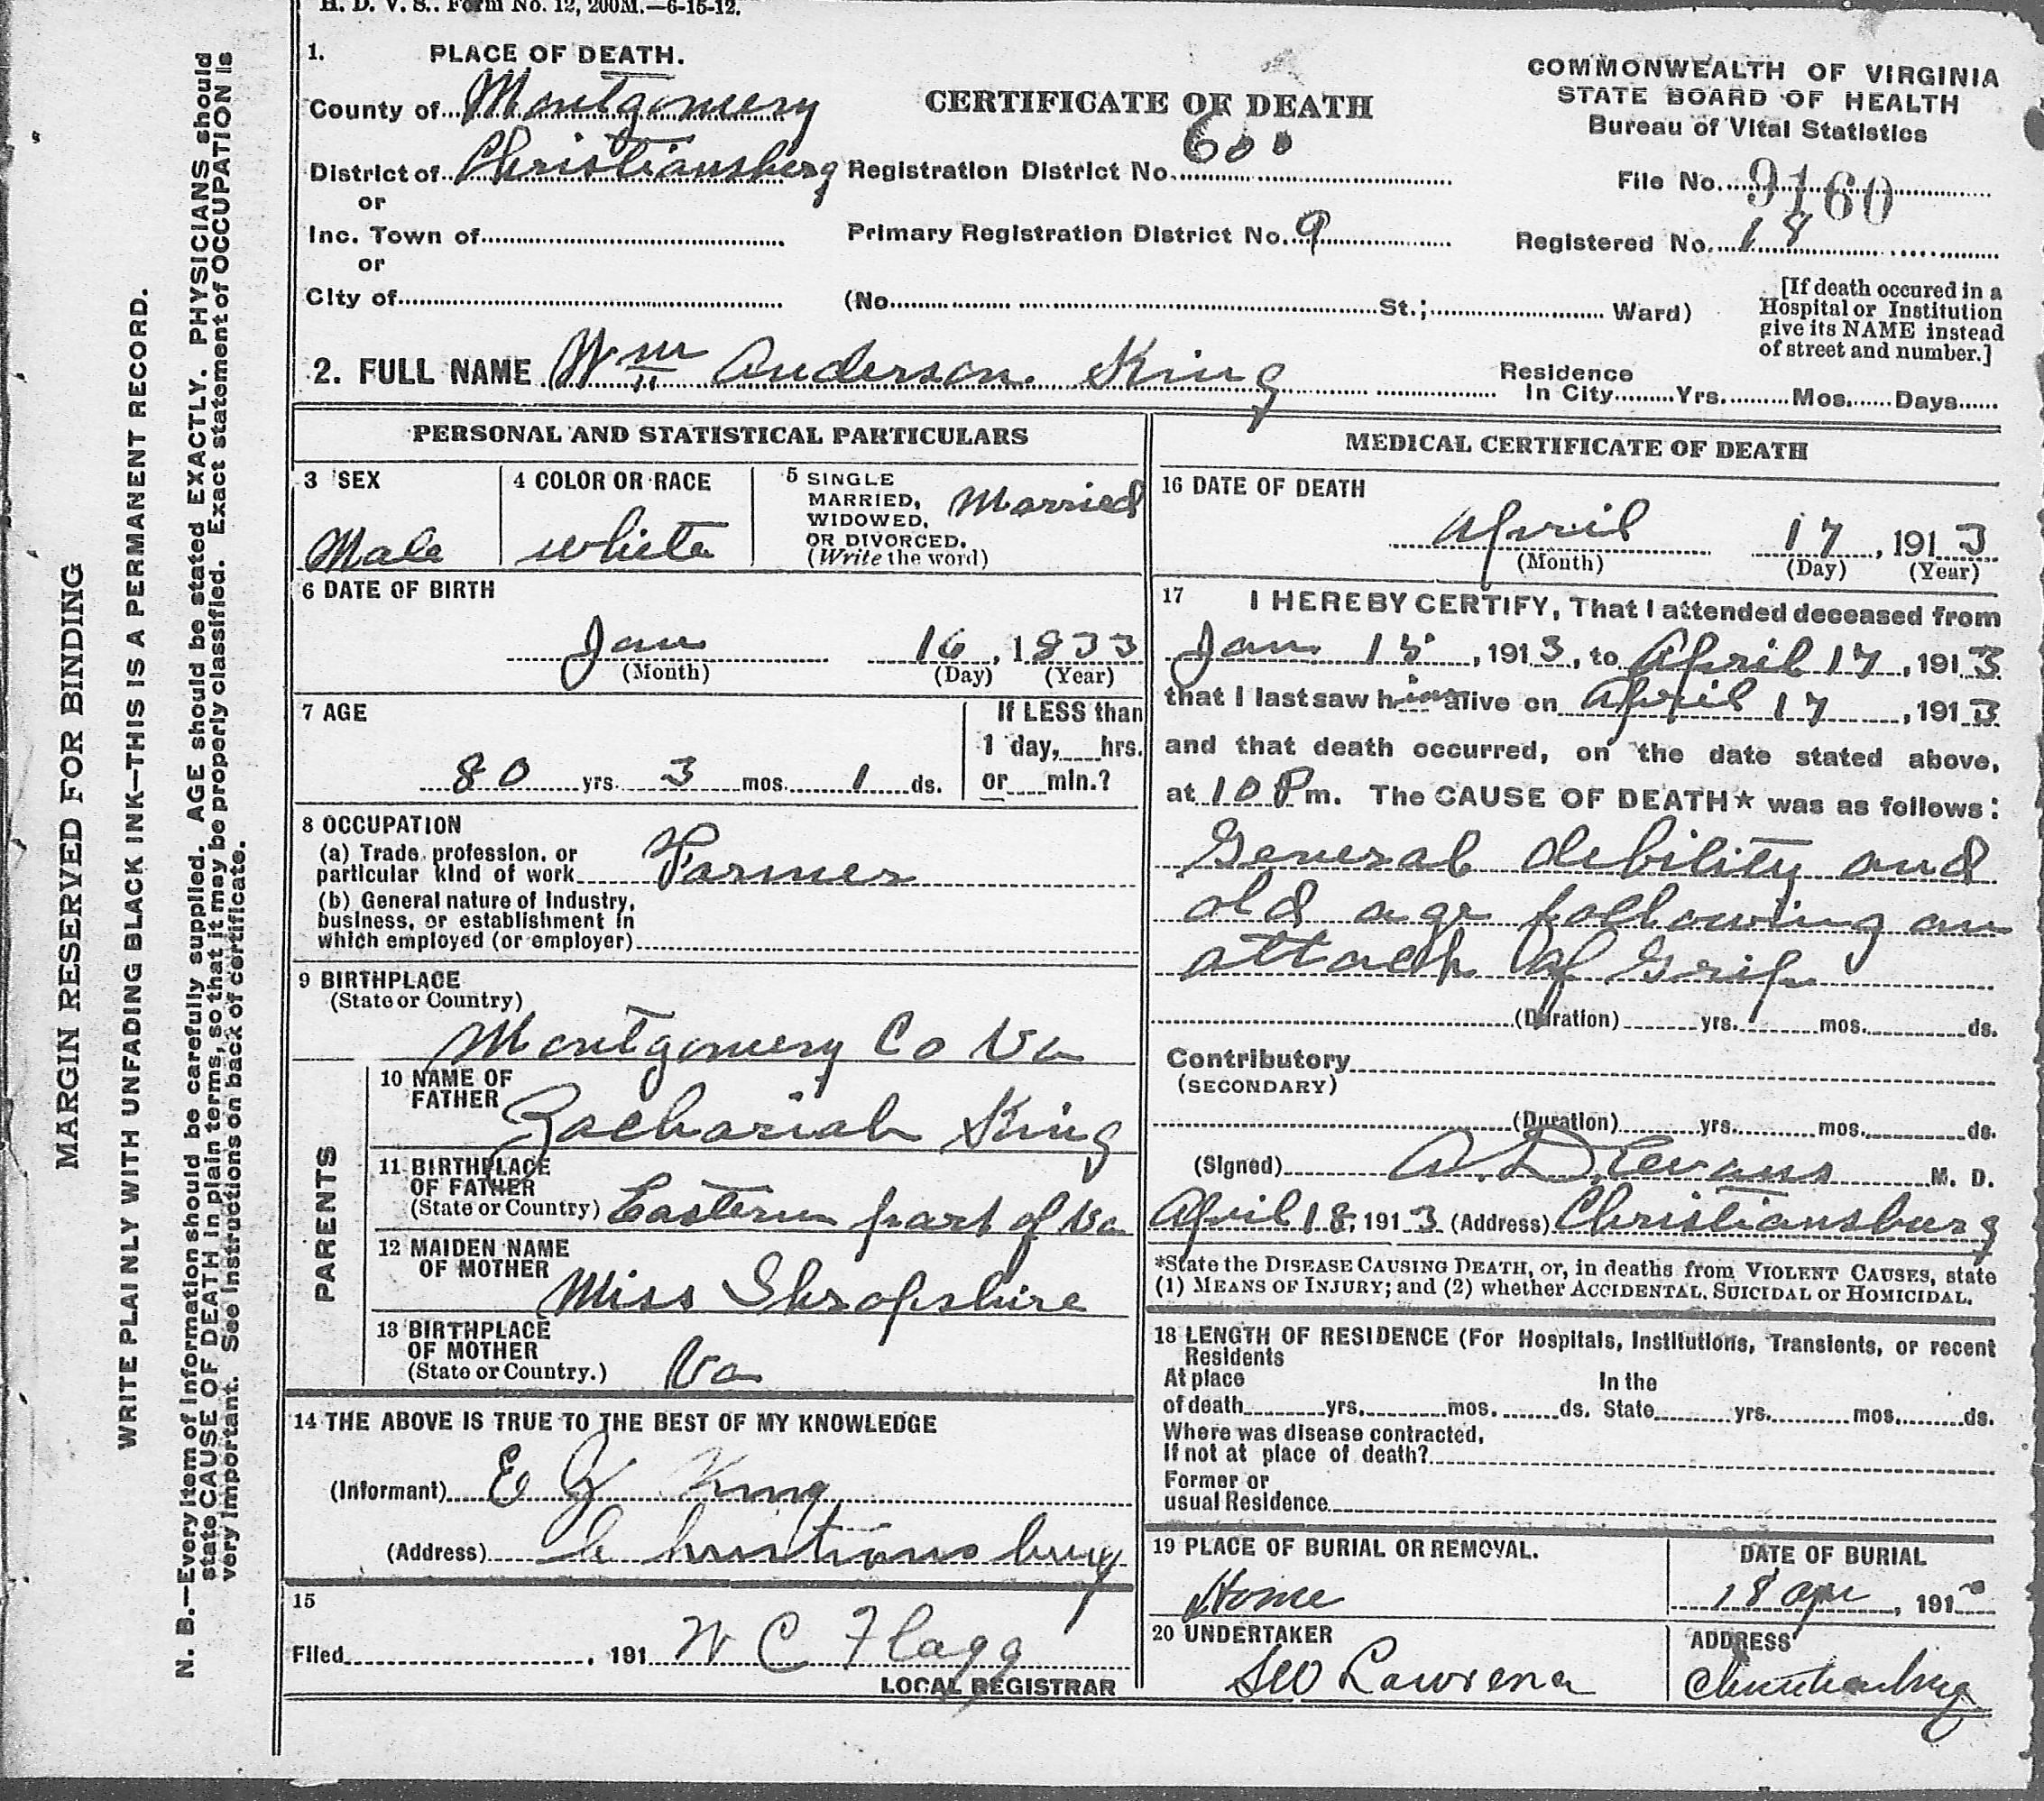 H. D. V. S.. Form No. 12, 200M.—6-15-12.
1. PLACE OF DEATH.
County of Montgomery
District of Christiansberg
or
Inc. Town of
or
City of
CERTIFICATE OF DEATH
Registration District No. 600
Primary Registration District No. 9
(No. St.; Ward)
COMMONWEALTH OF VIRGINIA
STATE BOARD OF HEALTH
Bureau of Vital Statistics
File No. 9160
Registered No. 18
[If death occured in a
Hospital or Institution
give its NAME instead
of street and number.]
2. FULL NAME Wm Anderson King
Residence
In City Yrs. Mos. Days
PERSONAL AND STATISTICAL PARTICULARS
3 SEX
Male
4 COLOR OR RACE
white
5 SINGLE
MARRIED,
WIDOWED,
OR DIVORCED.
(Write the word)
Married
6 DATE OF BIRTH
Jan 16, 1833
(Month) (Day) (Year)
7 AGE
80 yrs. 3 mos. 1 ds.
If LESS than
1 day, hrs.
or min.?
8 OCCUPATION
(a) Trade, profession, or
particular kind of work Farmer
(b) General nature of Industry,
business, or establishment in
which employed (or employer)
9 BIRTHPLACE
(State or Country)
Montgomery Co Va
PARENTS
10 NAME OF
FATHER
Zachariah King
11 BIRTHPLACE
OF FATHER
(State or Country) Eastern part of Va
12 MAIDEN NAME
OF MOTHER
Miss Shropshire
13 BIRTHPLACE
OF MOTHER
(State or Country.) Va
14 THE ABOVE IS TRUE TO THE BEST OF MY KNOWLEDGE
(Informant) E King
(Address) Christiansburg
15
Filed , 191 W C Flagg
LOCAL REGISTRAR
MEDICAL CERTIFICATE OF DEATH
16 DATE OF DEATH
April 17, 1913
(Month) (Day) (Year)
17 I HEREBY CERTIFY, That I attended deceased from
Jan 15, 1913, to April 17, 1913
that I last saw him alive on April 17, 1913
and that death occurred, on the date stated above,
at 10 P m. The CAUSE OF DEATH* was as follows:
General debility and
old age following an
attack of Grip
(Duration) yrs. mos. ds.
Contributory
(SECONDARY)
(Duration) yrs. mos. ds.
(Signed) A. D. Evans M. D.
April 18, 1913 (Address) Christiansburg
*State the DISEASE CAUSING DEATH, or, in deaths from VIOLENT CAUSES, state
(1) MEANS OF INJURY; and (2) whether ACCIDENTAL, SUICIDAL or HOMICIDAL.
18 LENGTH OF RESIDENCE (For Hospitals, Institutions, Transients, or recent
Residents
At place
of death yrs. mos. ds.
In the
State yrs. mos. ds.
Where was disease contracted,
If not at place of death?
Former or
usual Residence
19 PLACE OF BURIAL OR REMOVAL.
Home
DATE OF BURIAL
18 apr, 191
20 UNDERTAKER
ADDRESS
Christiansburg
MARGIN RESERVED FOR BINDING
WRITE PLAINLY WITH UNFADING BLACK INK—THIS IS A PERMANENT RECORD.
N. B.—Every item of information should be carefully supplied. AGE should be stated EXACTLY. PHYSICIANS should
state CAUSE OF DEATH in plain terms, so that it may be properly classified. Exact statement of OCCUPATION is
very important. See instructions on back of certificate.